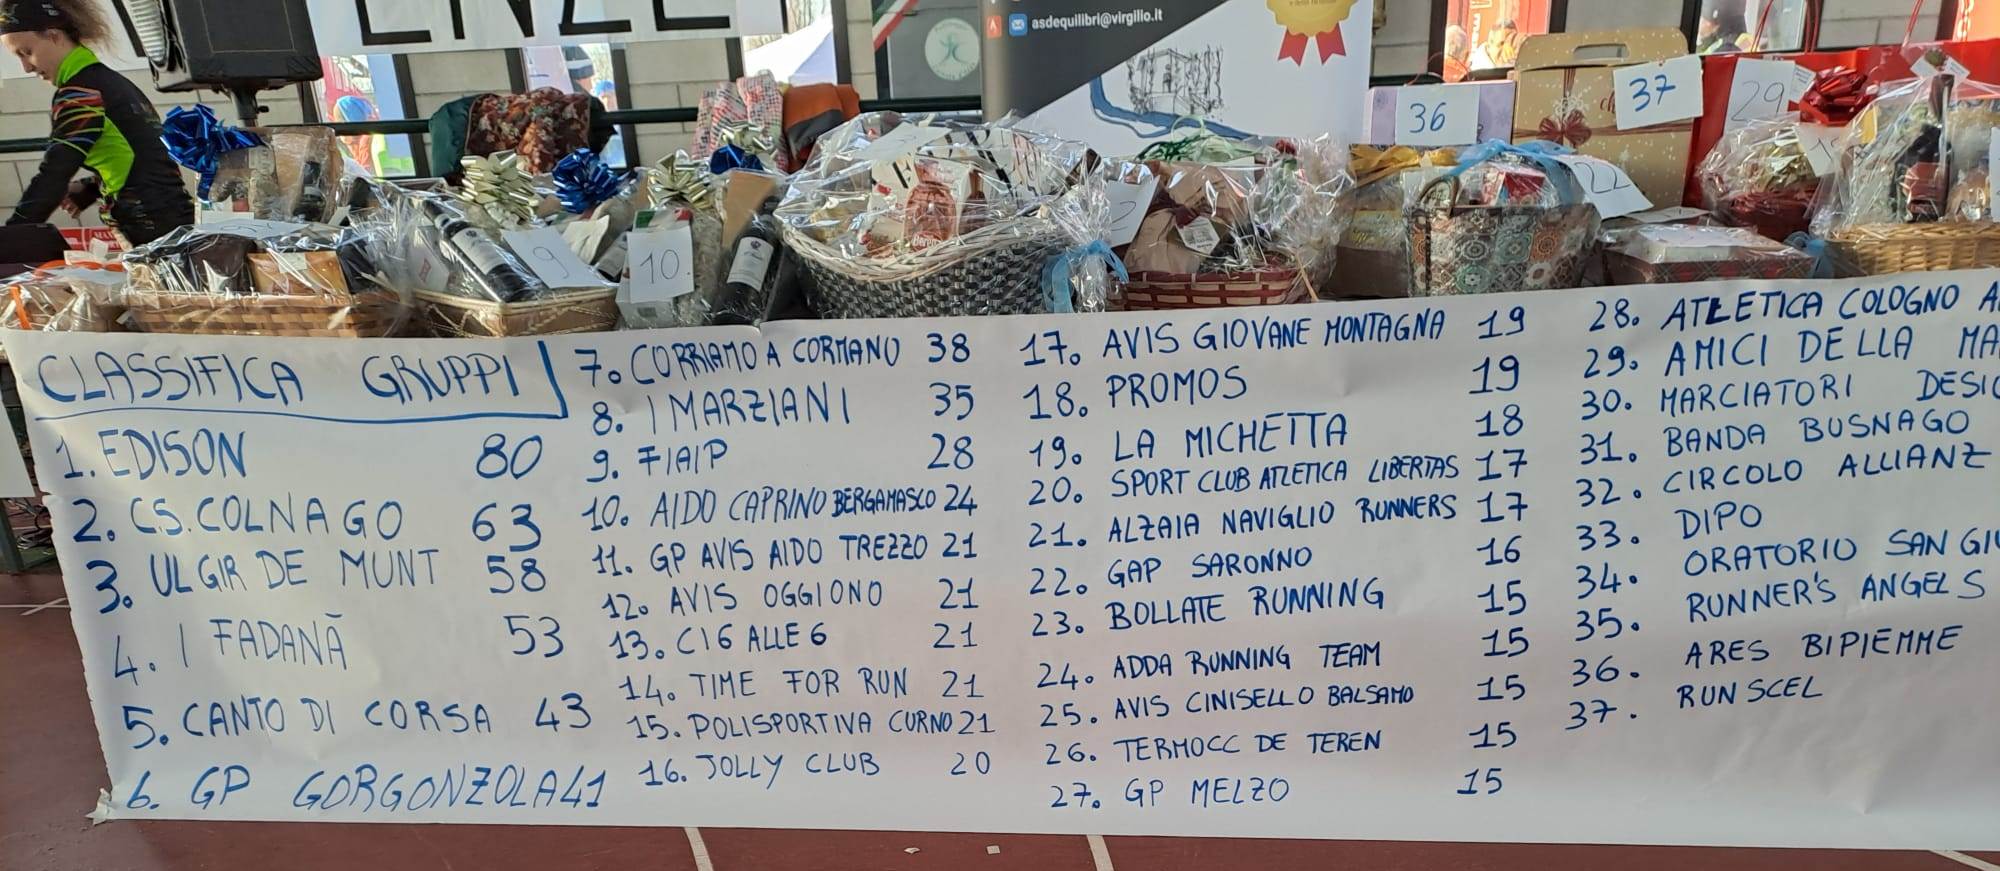 asdequilibri@virgilio.it
36
37
29
22
9
10
2
CLASSIFICA GRUPPI
1. EDISON 80
2. C.S. COLNAGO 63
3. UL GIR DE MUNT 58
4. I FADANÃ 53
5. CANTO DI CORSA 43
6. GP GORGONZOLA 41
7. CORRIAMO A CORMANO 38
8. I MARZIANI 35
9. FIAIP 28
10. AIDO CAPRINO BERGAMASCO 24
11. GP AVIS AIDO TREZZO 21
12. AVIS OGGIONO 21
13. C16 ALLE 6 21
14. TIME FOR RUN 21
15. POLISPORTIVA CURNO 21
16. JOLLY CLUB 20
17. AVIS GIOVANE MONTAGNA 19
18. PROMOS 19
19. LA MICHETTA 18
20. SPORT CLUB ATLETICA LIBERTAS 17
21. ALZAIA NAVIGLIO RUNNERS 17
22. GAP SARONNO 16
23. BOLLATE RUNNING 15
24. ADDA RUNNING TEAM 15
25. AVIS CINISELLO BALSAMO 15
26. TERMOCC DE TEREN 15
27. GP MELZO 15
28. ATLETICA COLOGNO
29. AMICI DELLA
30. MARCIATORI
31. BANDA BUSNAGO
32. CIRCOLO ALLIANZ
33. DIPO
34. ORATORIO SAN
35. RUNNER'S ANGELS
36. ARES BIPIEMME
37. RUN SCEL